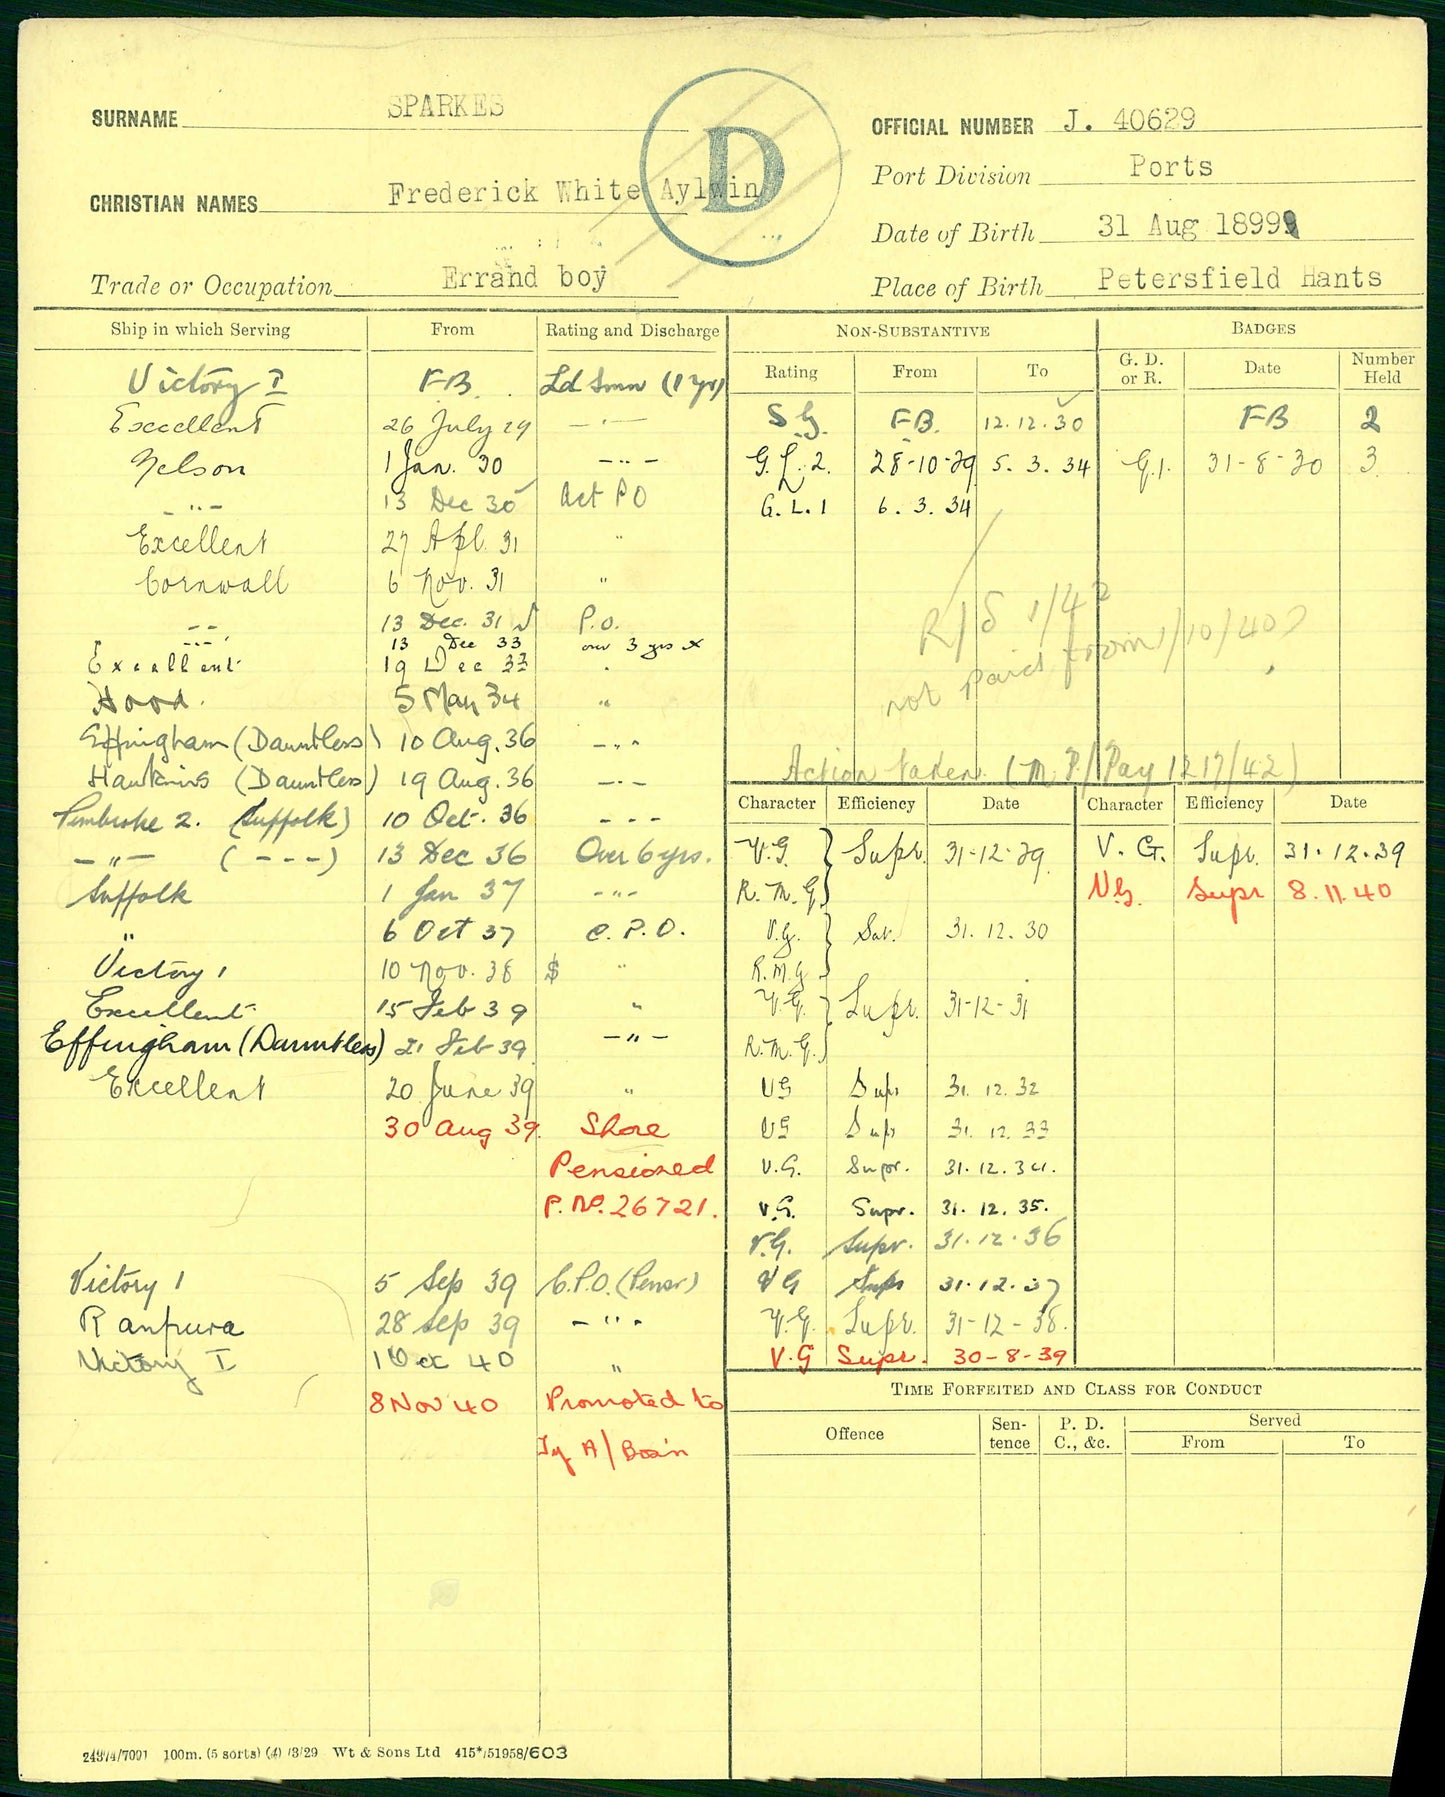 SURNAME SPARKES
D
OFFICIAL NUMBER J. 40629
CHRISTIAN NAMES Frederick White Aylwin
Port Division Ports
Date of Birth 31 Aug 1899
Trade or Occupation Errand boy
Place of Birth Petersfield Hants
Ship in which Serving From Rating and Discharge
Victory I FB. Ld Smn (1 yr)
Excellent 26 July 29 — " —
Nelson 1 Jan. 30 — " —
— " — 13 Dec 30 Act P O
Excellent 27 Apl. 31 "
Cornwall 6 Nov. 31 "
— — 13 Dec. 31 P.O.
— " — 13 Dec 33 over 3 yrs
Excellent 19 Dec 33 "
Hood. 5 May 34 "
Effingham (Dauntless) 10 Aug. 36 — " —
Hawkins (Dauntless) 19 Aug. 36 — " —
Pembroke 2. (Suffolk) 10 Oct. 36 - - -
— " — ( - - - ) 13 Dec 36 Over 6 yrs.
Suffolk 1 Jan 37 - " -
" 6 Oct 37 C. P. O.
Victory 1 10 Nov. 38 $ "
Excellent 15 Feb 39 "
Effingham (Dauntless) 21 Feb 39 — " —
Excellent 20 June 39 "
30 Aug 39. Shore
Pensioned
P. No. 26721.
Victory 1 5 Sep 39 C.P.O. (Pensr)
Ranpura 28 Sep 39 - " -
Victory I 1 Oct 40 "
8 Nov 40 Promoted to
Ty A/Bosn
NON-SUBSTANTIVE
Rating From To
S.G. FB. 12.12.30
G.L.2. 28-10-29 5. 3. 34
G.L.1 6. 3. 34
BADGES
G. D. or R. Date Number Held
FB 2
G.1. 31-8-30 3
R/S 1/42
not paid from 1/10/40?
Action taken (M.P./Pay 1217/42)
Character Efficiency Date
V.G. } Supr. 31-12-29
R.M.G. }
V.G. } Sat. 31. 12. 30
R.M.G. }
V.G. } Supr. 31-12-31
R.M.G. }
VG Supr 31. 12. 32
VG Supr 31. 12. 33
V.G. Supr. 31.12.34.
V.G. Supr. 31. 12. 35.
V.G. Supr. 31.12.36
VG Supr 31.12.37
V.G. Supr. 31-12-38.
V.G Supr. 30-8-39
Character Efficiency Date
V. G. Supr. 31.12.39
V.G. Supr 8.11.40
TIME FORFEITED AND CLASS FOR CONDUCT
Offence Sen-tence P. D. C., &c. Served
From To
24374/7091 100m. (5 sorts) (4) /3/29 Wt & Sons Ltd 415*/51958/603